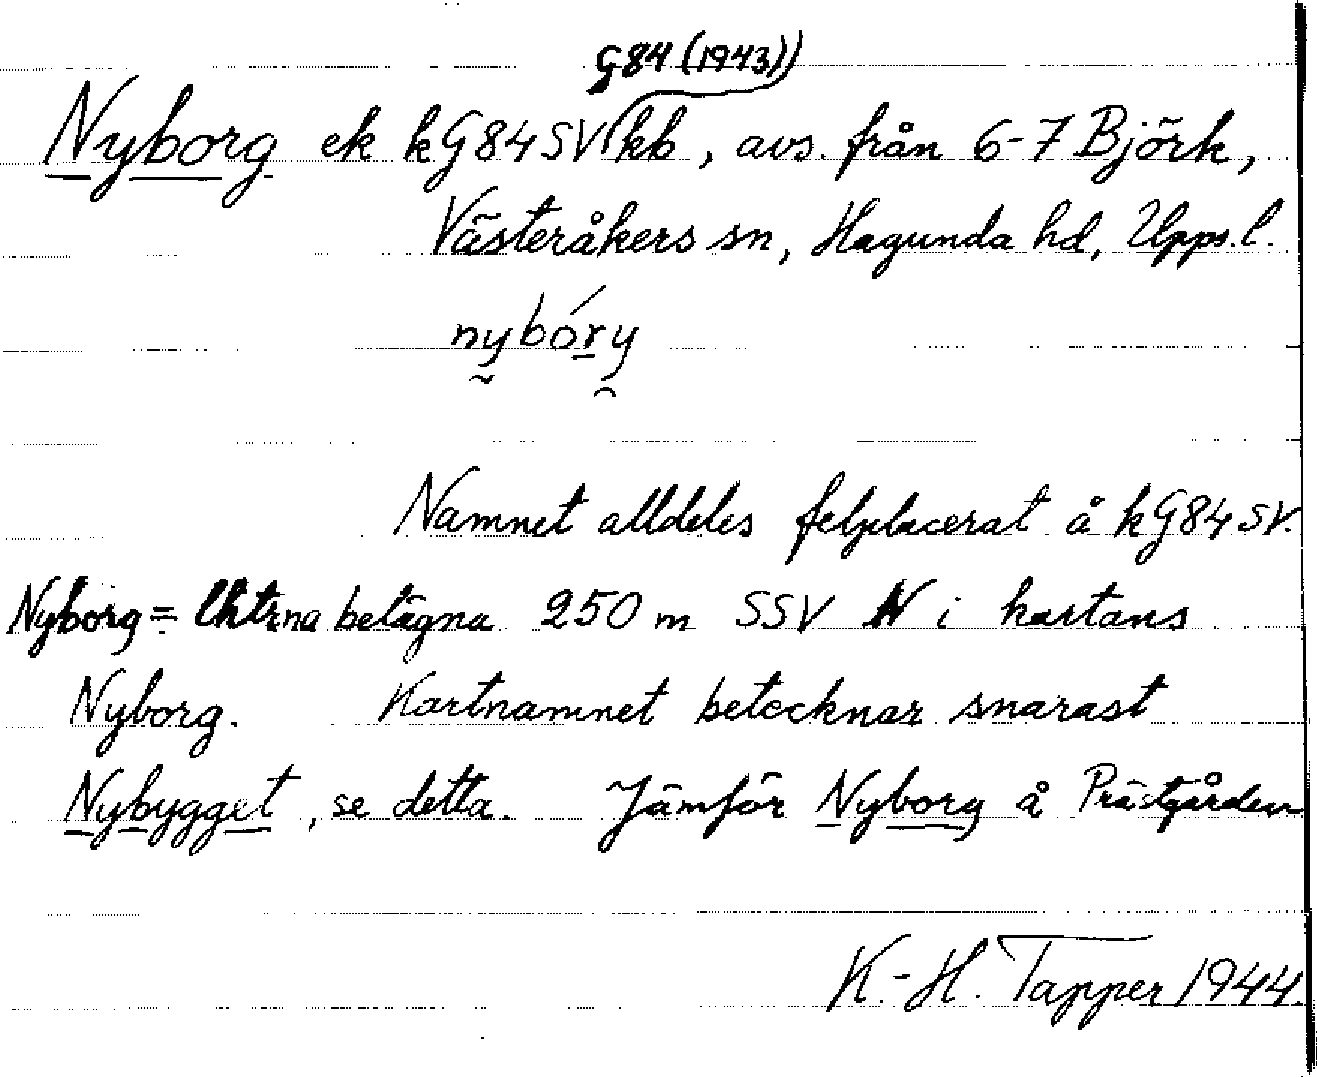 G84 (1943))
Nyborg ek kG84SV (kb, avs. från 6-7 Björk,
Västeråkers sn, Hagunda hd, Upps.l.
nybóry
Namnet alldeles felplacerat å kG84SV.
Nyborg = lhtrna belägna 250 m SSV N i kartans
Nyborg. Kartnamnet betecknar snarast
Nybygget, se detta. Jämför Nyborg å Prästgården
K.-H. Tapper 1944.